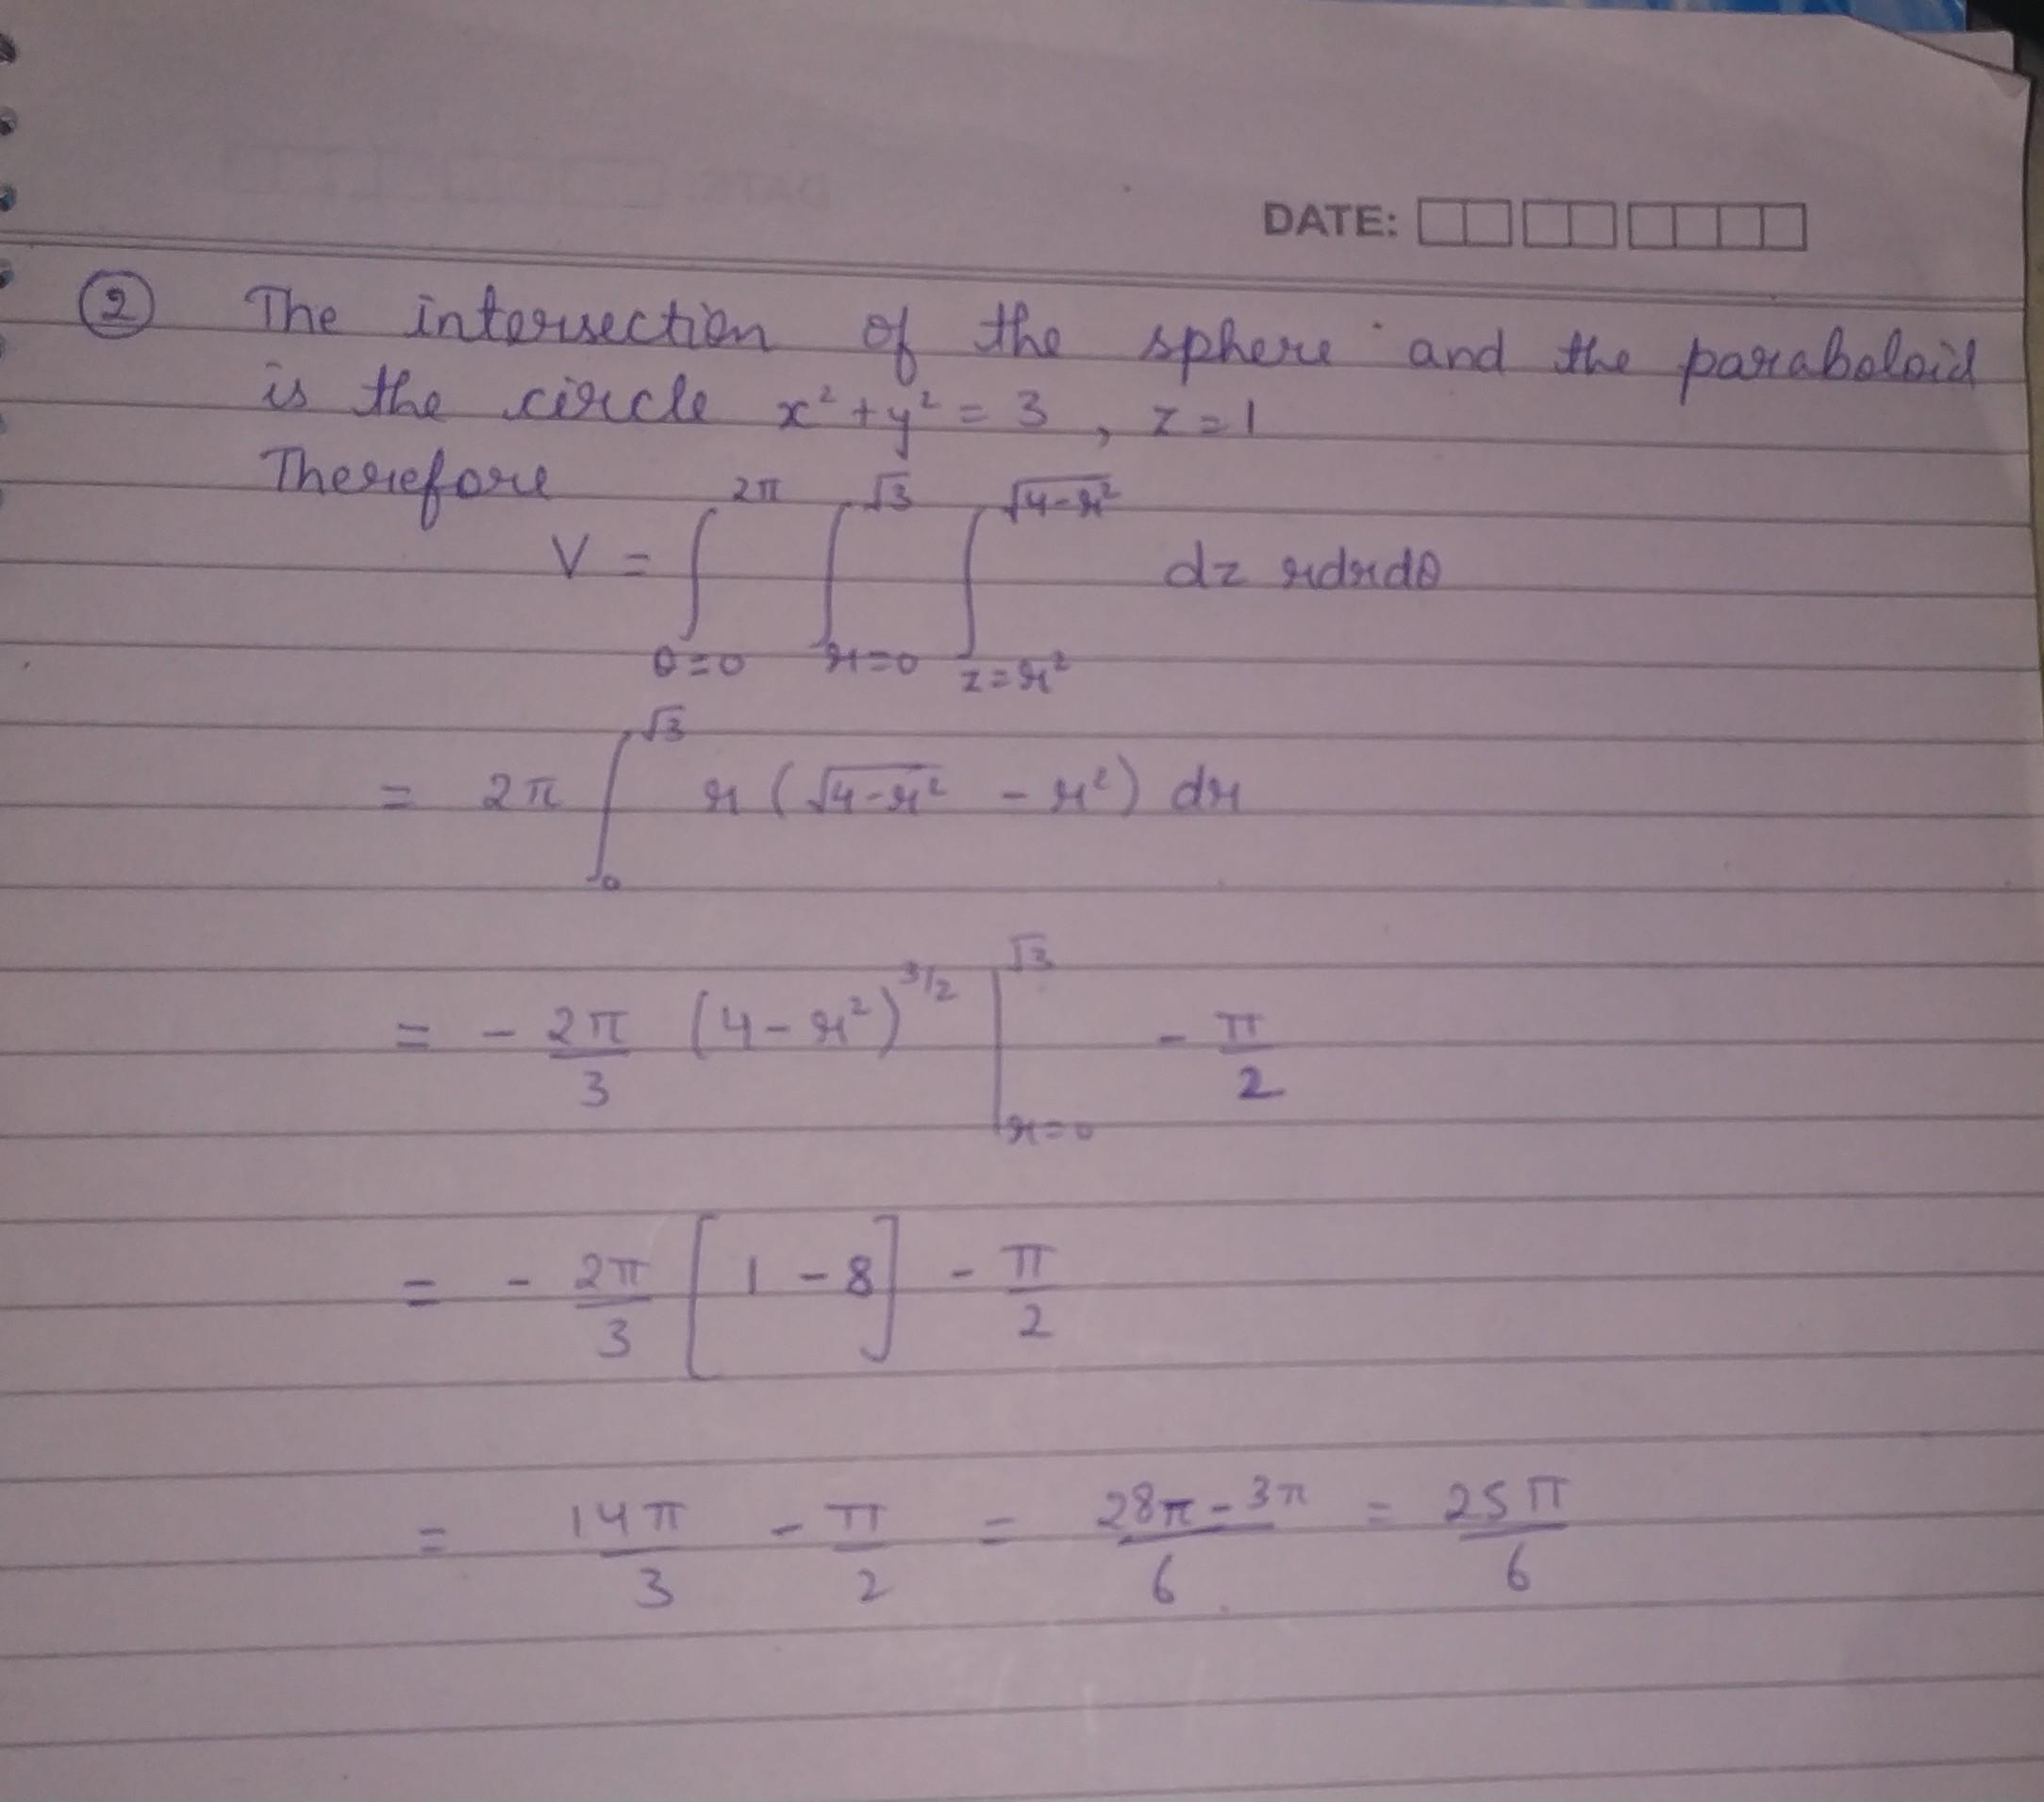 DATE:
② The intersection of the sphere and the paraboloid
is the circle x² + y² = 3 , z = 1
Therefore
V = ∫_{θ=0}^{2π} ∫_{r=0}^{√3} ∫_{z=r²}^{√(4-r²)} dz rdrdθ
= 2π ∫_0^{√3} r (√(4-r²) - r²) dr
= - 2π/3 (4 - r²)^{3/2} |_{r=0}^{√3} - π/2
= - 2π/3 [1 - 8] - π/2
= 14π/3 - π/2 = (28π - 3π)/6 = 25π/6